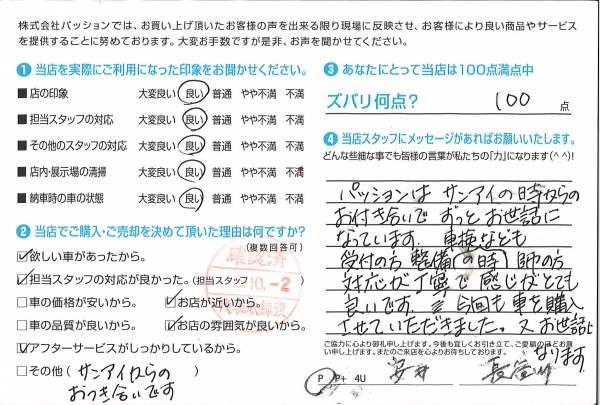 株式会社パッションでは、お買い上げ頂いたお客様の声を出来る限り現場に反映させ、お客様により良い商品やサービス
を提供することに努めております。大変お手数ですが是非、お声を聞かせてください。
❶ 当店を実際にご利用になった印象をお聞かせください。
■店の印象 大変良い 良い 普通 やや不満 不満
■担当スタッフの対応 大変良い 良い 普通 やや不満 不満
■その他のスタッフの対応 大変良い 良い 普通 やや不満 不満
■店内・展示場の清掃 大変良い 良い 普通 やや不満 不満
■納車時の車の状態 大変良い 良い 普通 やや不満 不満
❷ 当店でご購入・ご売却を決めて頂いた理由は何ですか?
(複数回答可)
欲しい車があったから。
担当スタッフの対応が良かった。(担当スタッフ
車の価格が安いから。 お店が近いから。
車の品質が良いから。 お店の雰囲気が良いから。
アフターサービスがしっかりしているから。
その他( サンアイからの
おつき合いです
確認済
10.-2
代表取締役
❸ あなたにとって当店は100点満点中
ズバリ何点? 100 点
❹ 当店スタッフにメッセージがあればお願いいたします。
どんな些細な事でも皆様の言葉が私たちの「力」になります(^ ^)!
パッションは サンアイの時からの
お付き合いで ずっとお世話に
なっています。車検なども
受付の方 整備の時 の方
対応が丁寧で 感じがとても
良いです。 今回も車を購入
させていただきました。又お世話に
なります
ご協力に心より御礼申し上げます。今後も宜しくお引き立て、ご愛顧のほどお願
い申し上げます。またのご来店を心よりお待ちしております。
P P+ 4U 安井